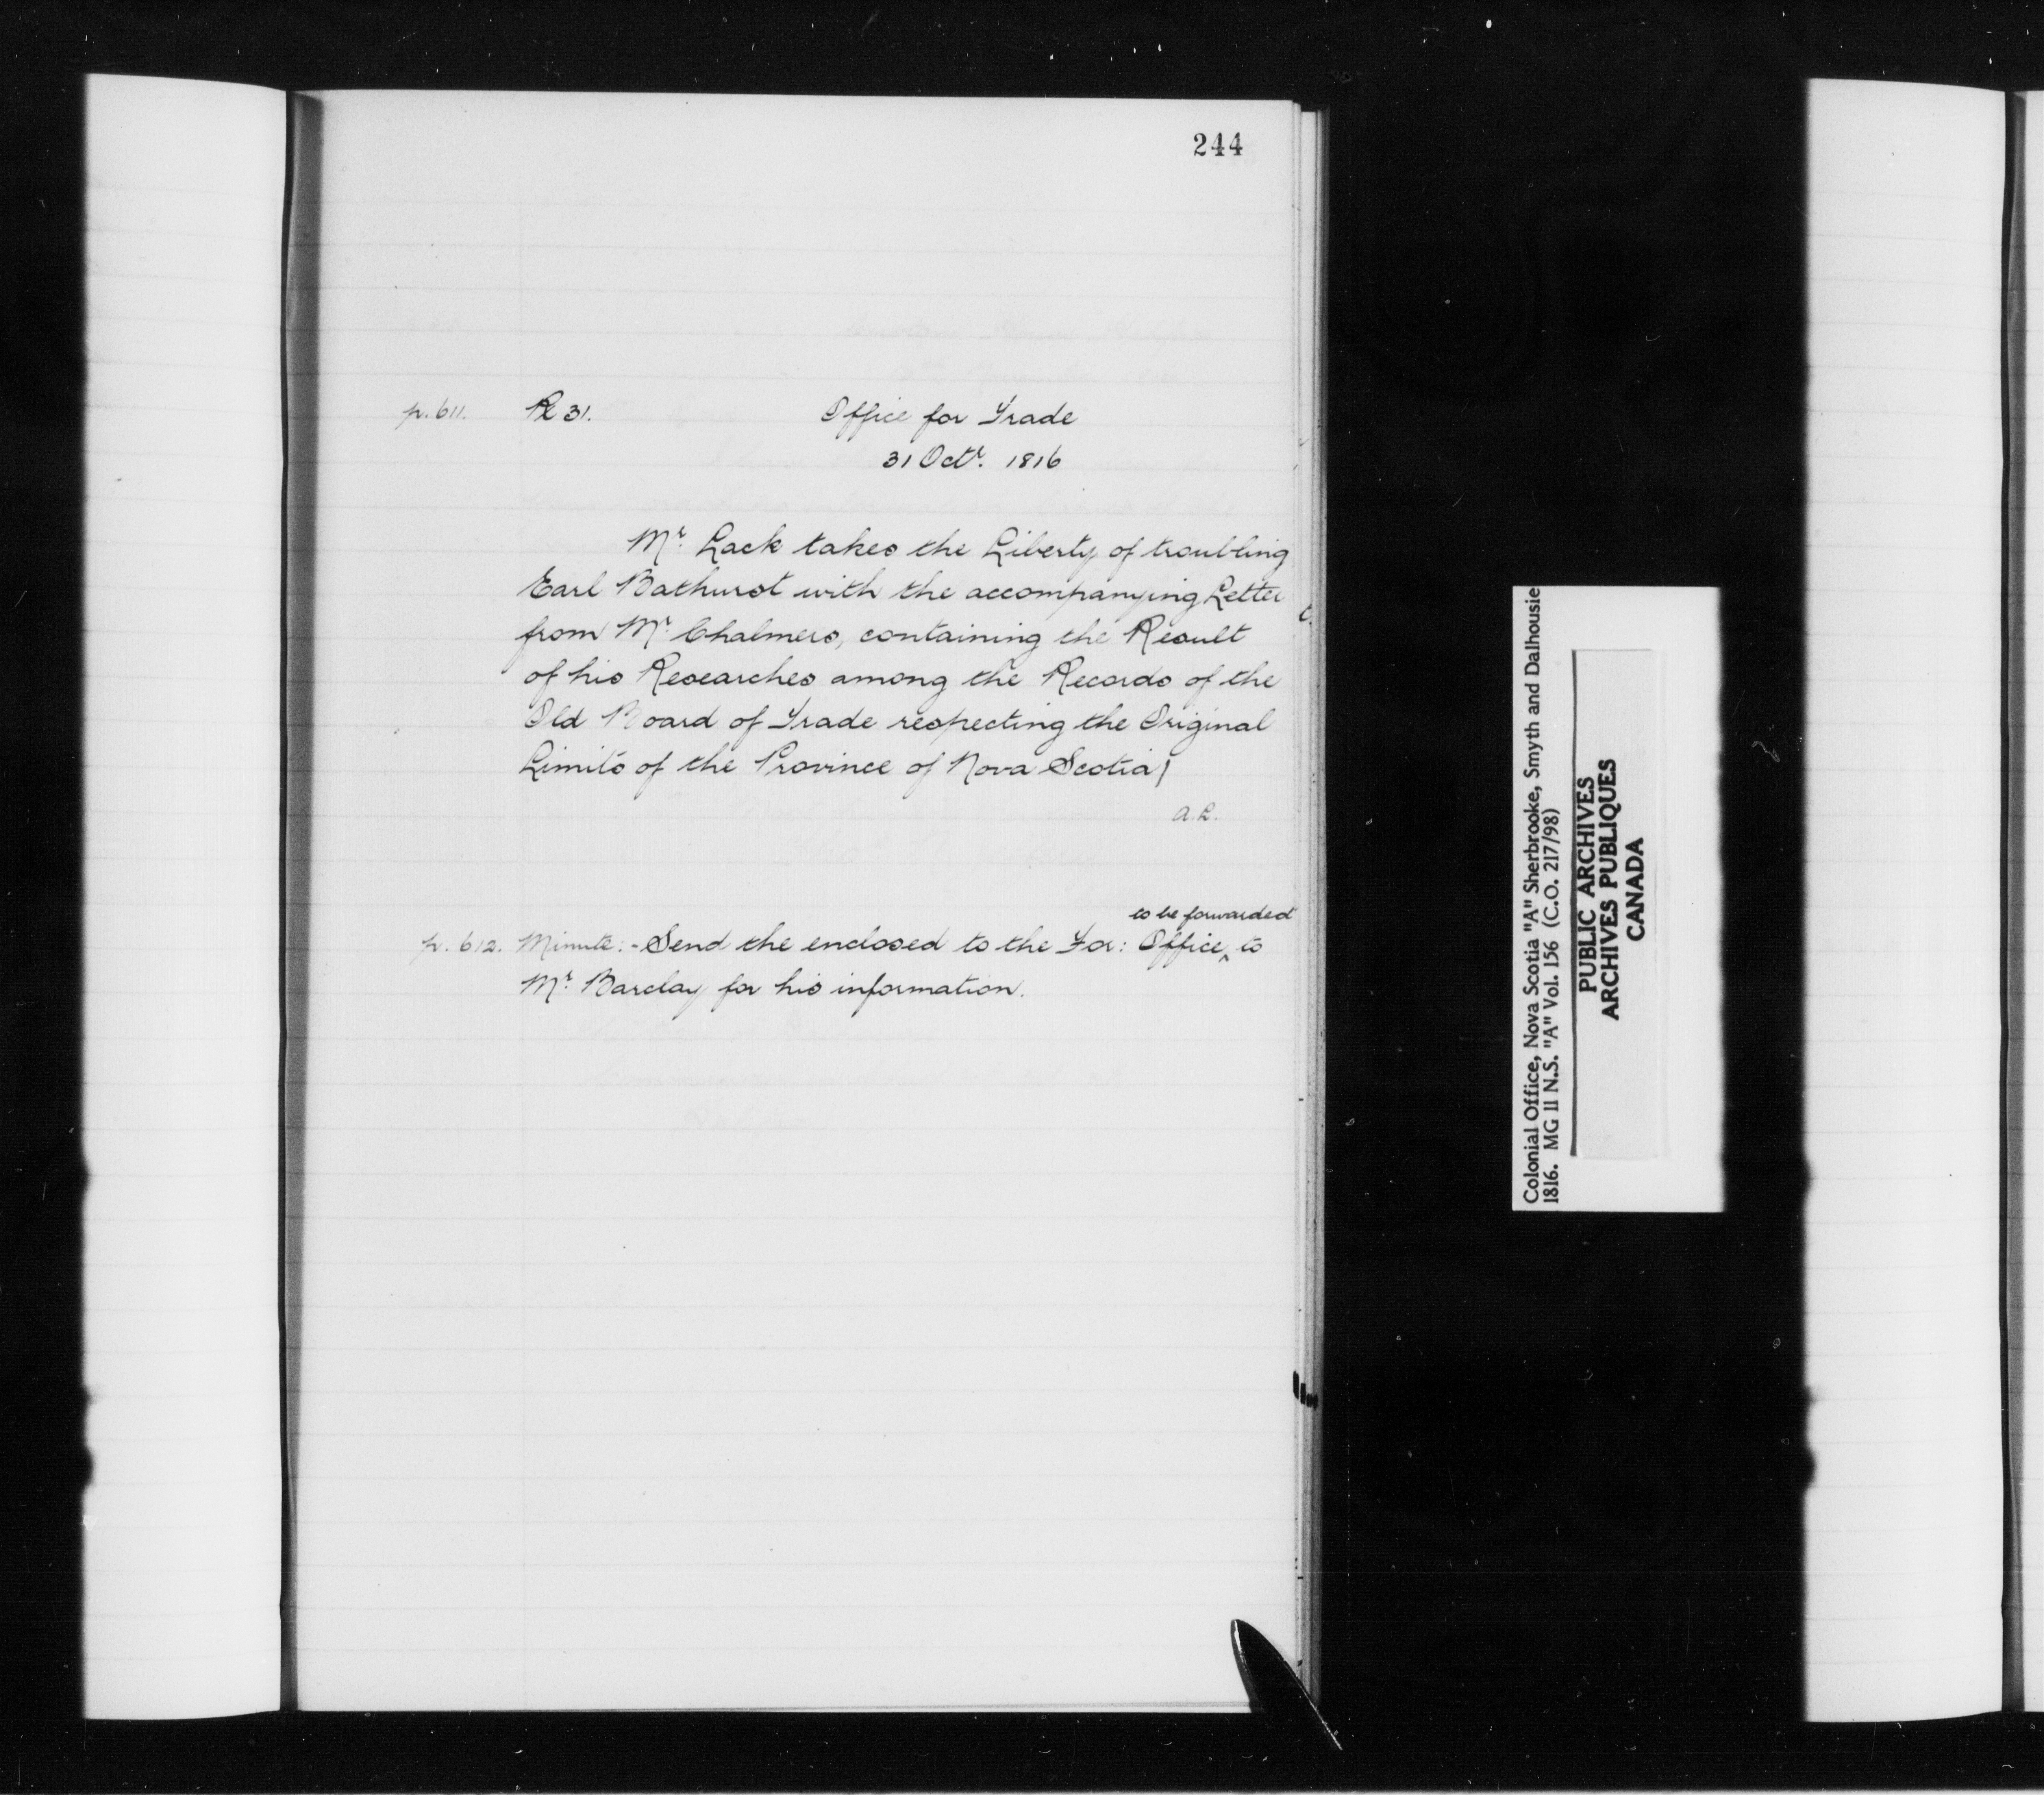 244
p. 611. Re 31. Office for Trade
31 Octr. 1816
Mr. Lack takes the Liberty of troubling
Earl Bathurst with the accompanying Letter
from Mr. Chalmers, containing the Result
of his Researches among the Records of the
Old Board of Trade respecting the Original
Limits of the Province of Nova Scotia/
A.L.
to be forwarded
p. 612. Minute:- Send the enclosed to the For: Office ^ to
Mr. Barclay for his information.
Colonial Office, Nova Scotia "A" Sherbrooke, Smyth and Dalhousie
1816. MG 11 N.S. "A" Vol. 156 (C.O. 217/98)
PUBLIC ARCHIVES
ARCHIVES PUBLIQUES
CANADA